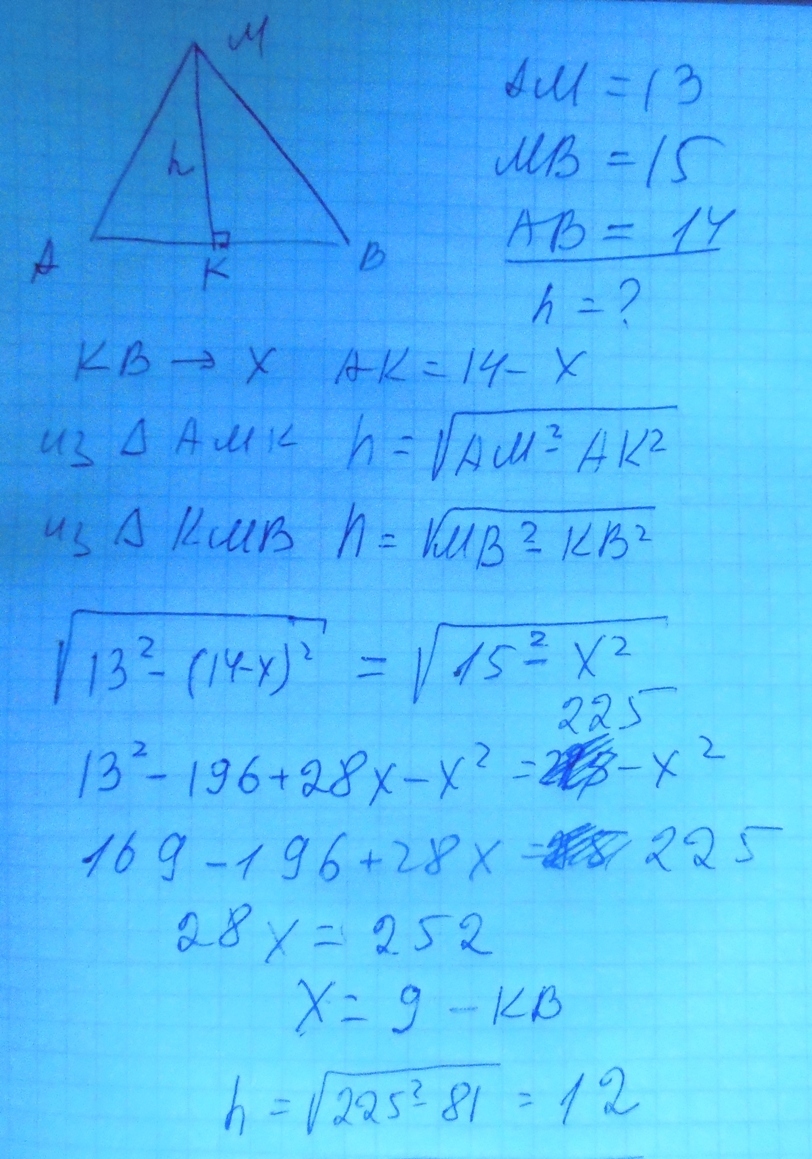 M
AM = 13
MB = 15
h
AB = 14
A K B
h = ?
KB → x AK = 14 - x
из Δ АМК h = √AM² - AK²
из Δ КМВ h = √MB² - KB²
√13² - (14-x)² = √15² - x²
225
13² - 196 + 28x - x² = - x²
169 - 196 + 28x = 225
28x = 252
x = 9 - KB
h = √225² - 81 = 12